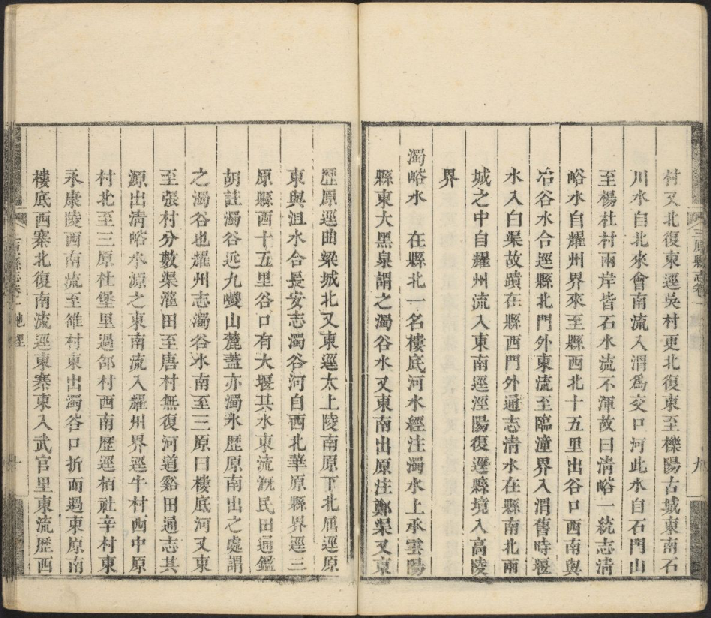 村又北復東逕吳村更北復東至櫟陽古城東南石
川水自北來會南流入渭爲交口河此水自石門山
至楊杜村兩岸皆石水流不渾故曰淸峪一統志淸
峪水自耀州界來至縣西北十五里出谷口西南與
冶谷水合逕縣北門外東流至臨潼界入渭舊時堰
水入白渠故蹟在縣西門外通志淸水在縣南北兩
城之中自耀州流入東南逕涇陽復遶縣境入高陵
界
濁峪水 在縣北一名樓底河水經注濁水上承雲陽
縣東大黑泉謂之濁谷水又東南出原注鄭渠又東
三原縣志卷一
九
歷原逕曲梁城北又東逕太上陵南原下北屈逕原
東與沮水合長安志濁谷河自西北華原縣界逕三
原縣西十五里谷口有大堰其水東流溉民田通鑑
胡註濁谷近九嵕山麓蓋亦濁水歷原南出之處謂
之濁谷也耀州志濁谷水南至三原曰樓底河又東
至張村分數渠灌田至唐村無復河道谿田通志其
源出淸峪水源之東南流入耀州界逕牛村西中原
村北至三原社堡里過郃村西南歷逕栢社辛村東
永康陵西南流至雒村東出濁谷口折而過東原南
樓底西寨北復南流逕東寨東入武官里東流歷西
三原縣志卷一 地理
十